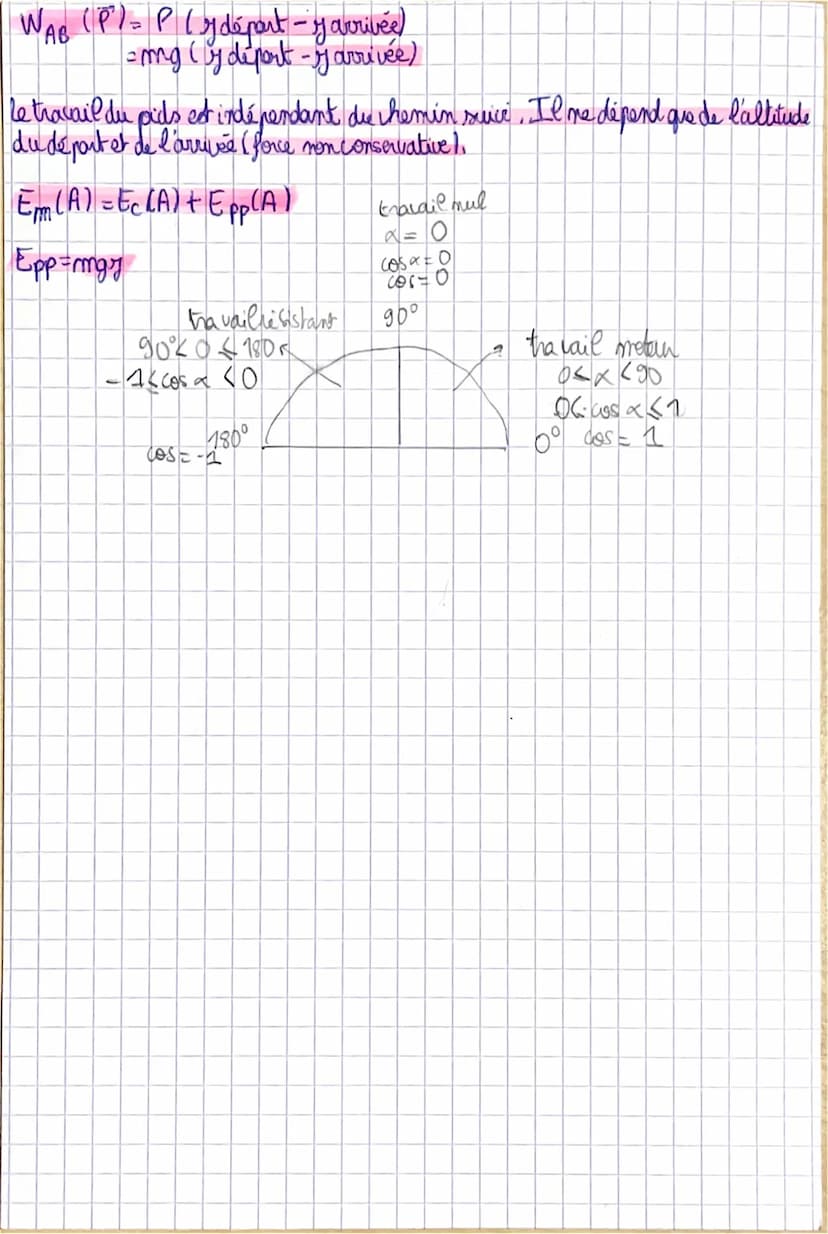 W_AB (P⃗) = P (y départ - y arrivée)
= mg (y départ - y arrivée)
Le travail du poids est indépendant du chemin suivi. Il ne dépend que de l'altitude
du départ et de l'arrivée (force non conservative).
Em(A) = Ec(A) + Epp(A)
Epp = mgy
travail nul
α = 0
cos α = 0
cos = 0
90°
travail résistant
90° < 0 ≤ 180
-1 ≤ cos α < 0
180°
cos = -1
travail moteur
0 ≤ α < 90
0 < cos α ≤ 1
0° cos = 1